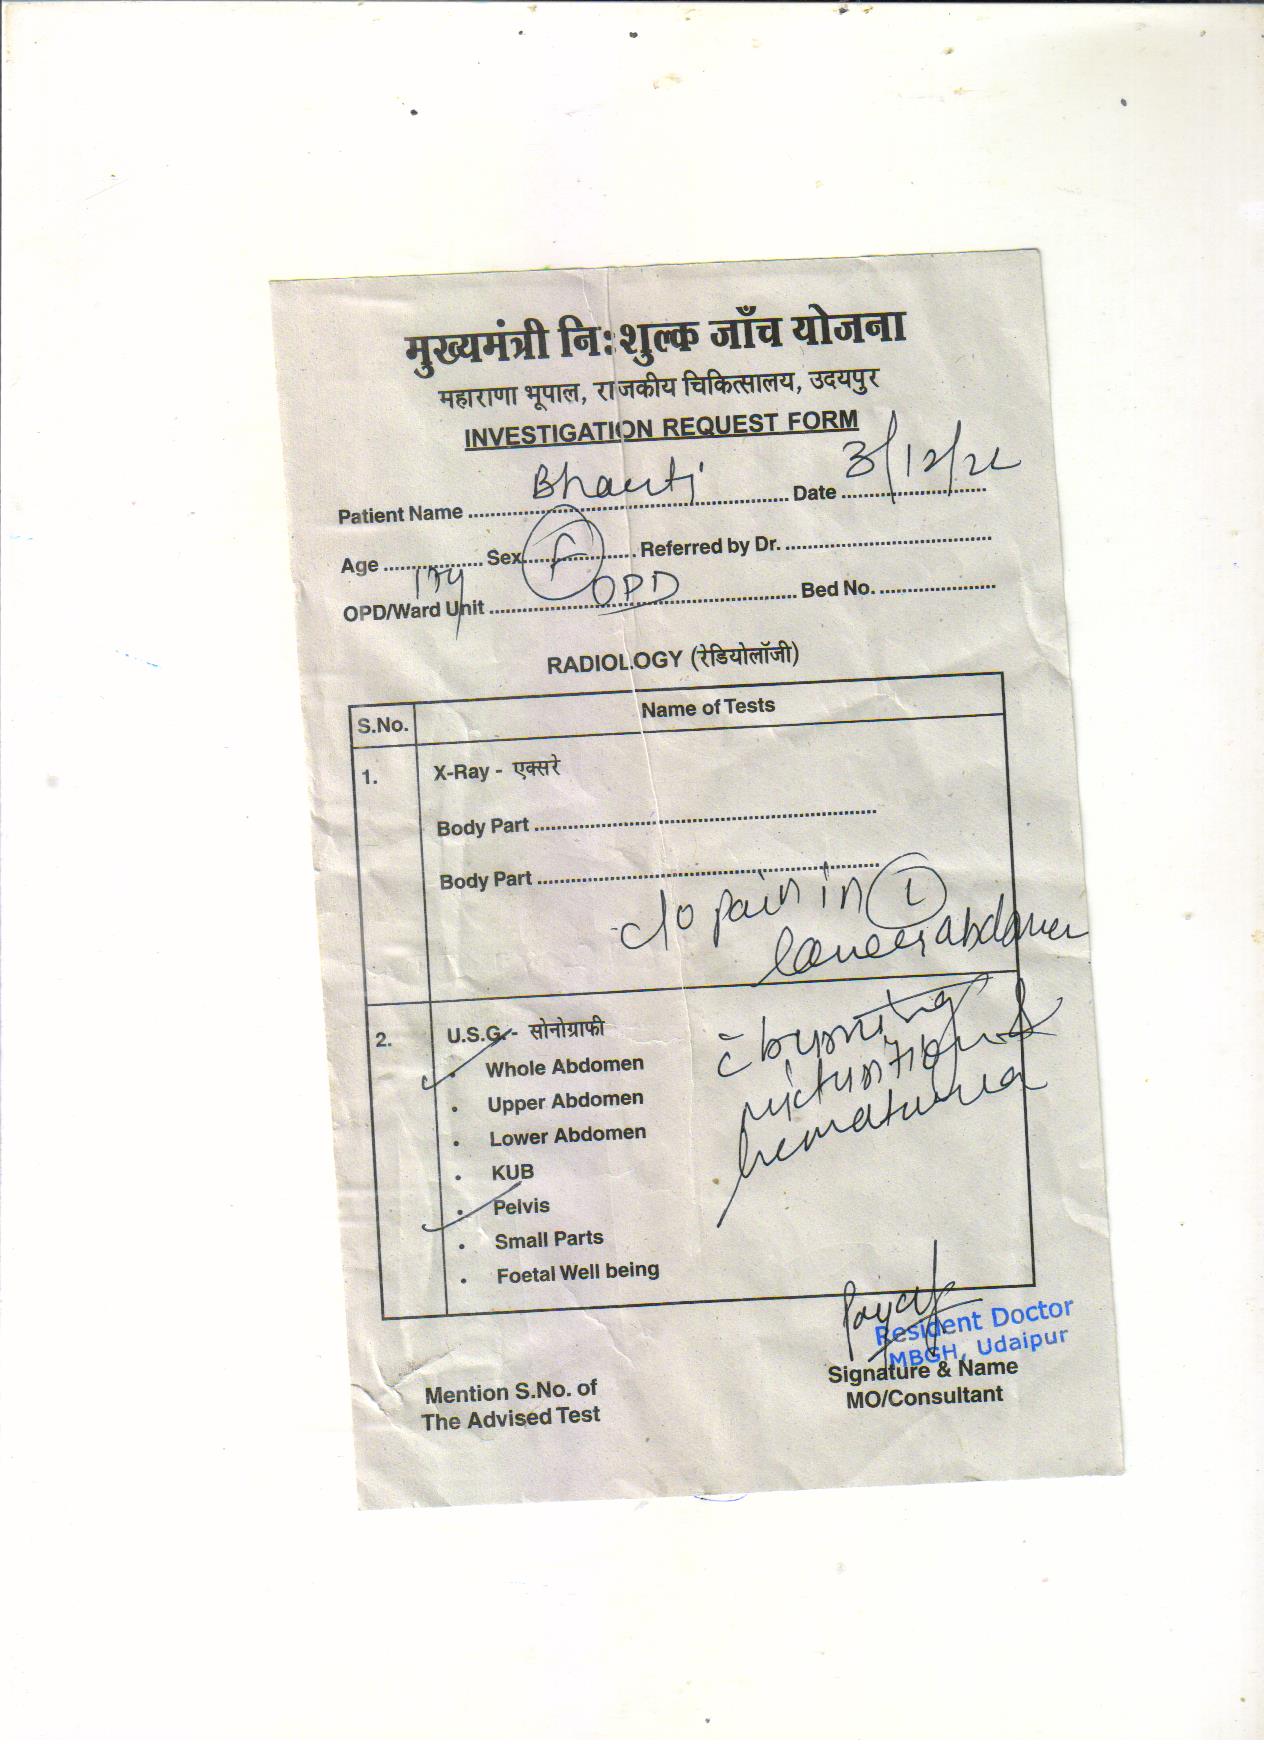 मुख्यमंत्री नि:शुल्क जाँच योजना
महाराणा भूपाल, राजकीय चिकित्सालय, उदयपुर
INVESTIGATION REQUEST FORM
Patient Name ........ Date 3/12/22
Age 17y Sex F Referred by Dr. ........
OPD/Ward Unit OPD Bed No. ........
RADIOLOGY (रेडियोलॉजी)
S.No. Name of Tests
1. X-Ray - एक्सरे
Body Part ........
Body Part ........
c/o pain in L
lower abdomen
2. U.S.G. - सोनोग्राफी
• Whole Abdomen
• Upper Abdomen
• Lower Abdomen
• KUB
• Pelvis
• Small Parts
• Foetal Well being
c̄ burning
micturition &
hematuria
Resident Doctor
MBGH, Udaipur
Signature & Name
MO/Consultant
Mention S.No. of
The Advised Test